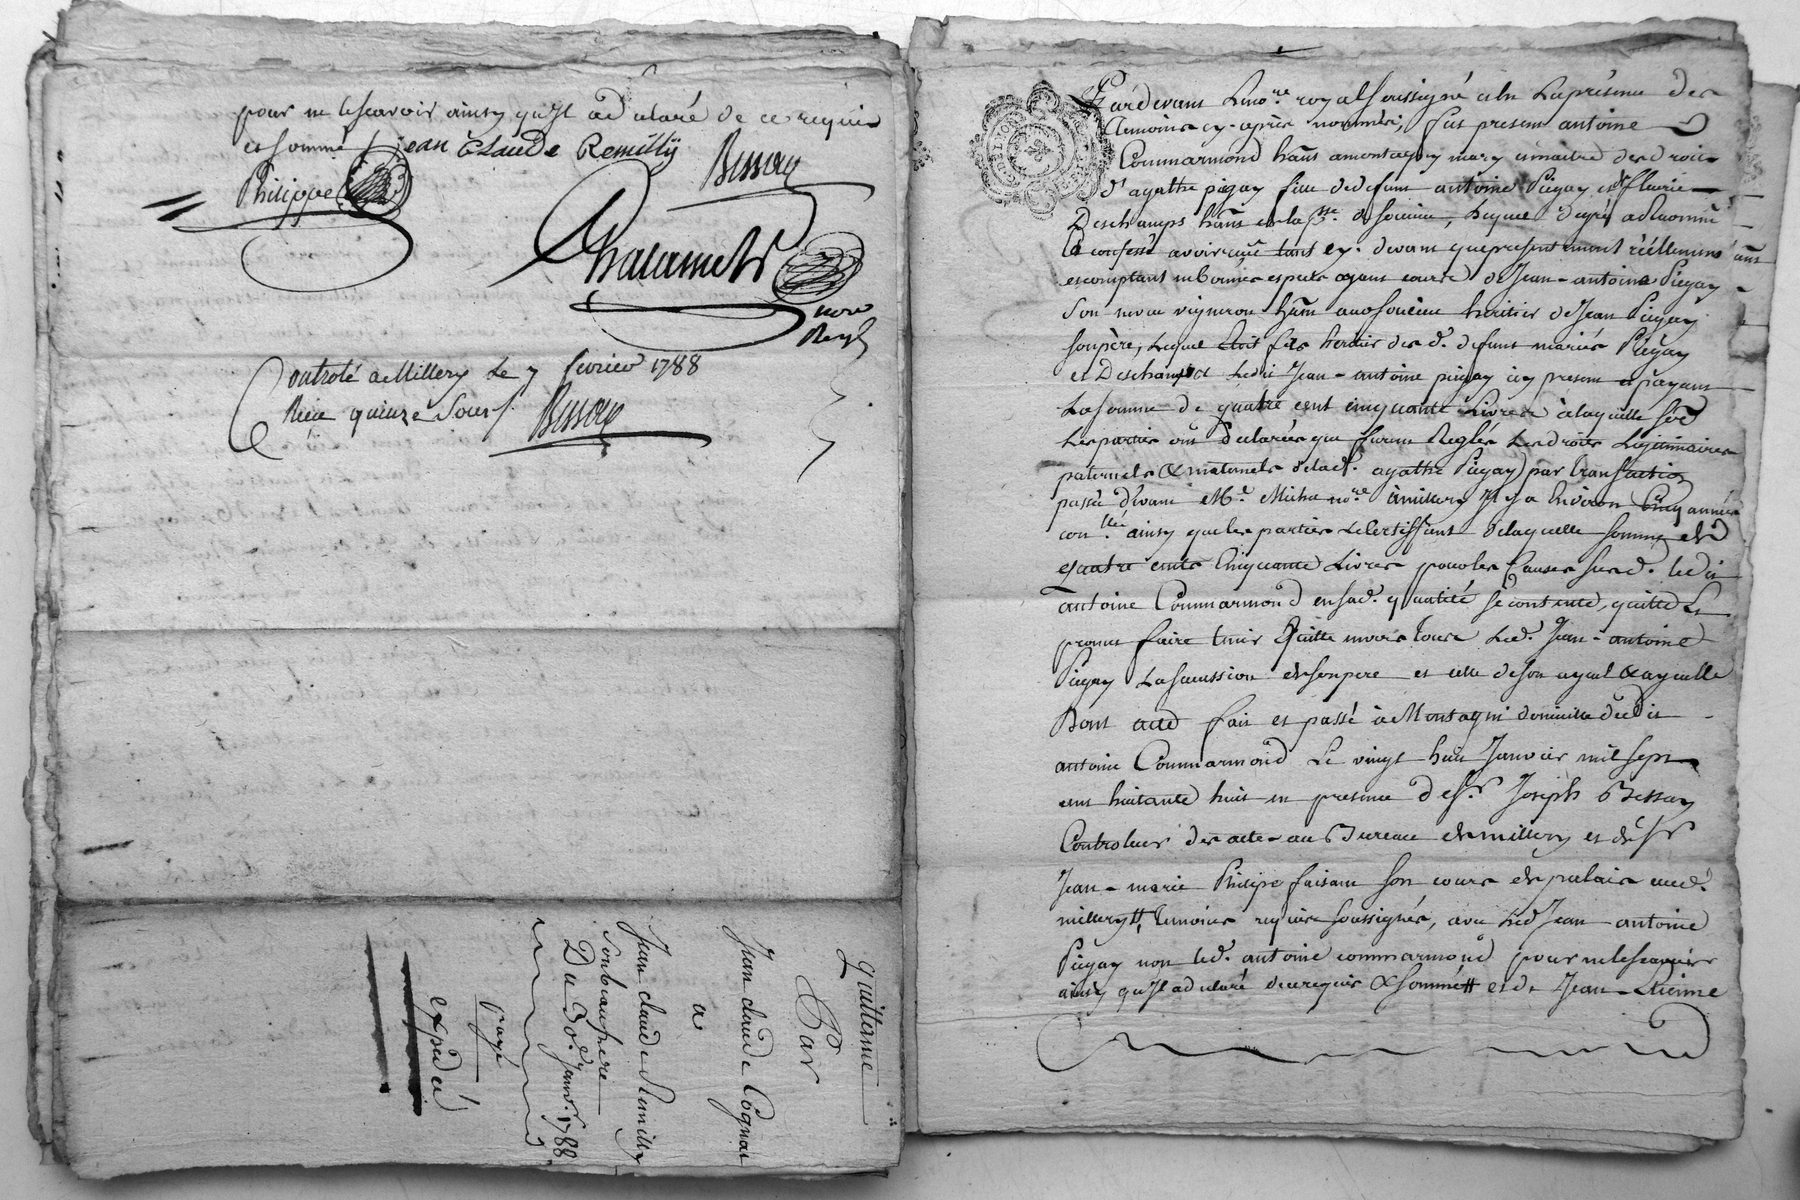 pour ne le scavoir ainsy qu'Il a déclaré de ce requis
et sommé Jean Claude Remilly
Bessay
Philippe
Chatannet
nore
Royl
Controlé à Millery Le 7 fevrier 1788
Reçu quinze Sous Bessay
Quittance
Par
Jean Claude Cognat
a
Jean Claude Remilly
Son beaupere
Du 30e. Janvr. 1788
payé
expédié
Pardevant Le no.re royal soussigné et en La présence des
témoins cy-après nommés, fut present antoine
Commarmond hant. a montagny mary et maitre des droits
d'agathe pigay fille de defunt antoine Pigay et de fleurie
Deschamps hant. en la psse. de soucieu, Lequel de gré
a confessé avoir reçu tant cy-devant que presentement réellement
et comptant en bonnes especes ayant cours de Jean-antoine Pigay
Son neveu vigneron hant. audt soucieu heritier de Jean Pigay
son père, Lequel étoit fils heritier des d. defunts mariés Pigay
et Deschamps Ledit Jean-antoine pigay icy present et payant
La somme de quatre cent cinquante Livres à laquelle
Les parties ont déclarées que furent Reglés Les droits Legitimaires
paternels & maternels de lad. agathe Pigay par transaction
passée devant Me. no.re à millery Il y a Environ Cinq années
con.llée ainsy que les parties Le Certiffient de laquelle somme de
quatre cents Cinquante Livres pour les Causes susd. ledit
antoine Commarmond en sad. qualité se contente, quitte &
promet faire tenir Quitte envers tous Led. Jean-antoine
Pigay La succession de son pere et celle de son ayeul & ayeulle
Dont acte fait et passé à Montagni domicille dudit
antoine Commarmond Le vingt huit Janvier mil sept
cent huitante huit en presence de Sr. Joseph Bessay
Controleur des actes au Bureau de millery et de Sr
Jean-marie Philipe faisant son cours de pratique aud.
millery, témoins requis soussignés, avec Led Jean-antoine
Pigay non led. antoine commarmond pour ne le scavoir
ainsy qu'Il a declaré de ce requis & sommé et de Jean-Etienne